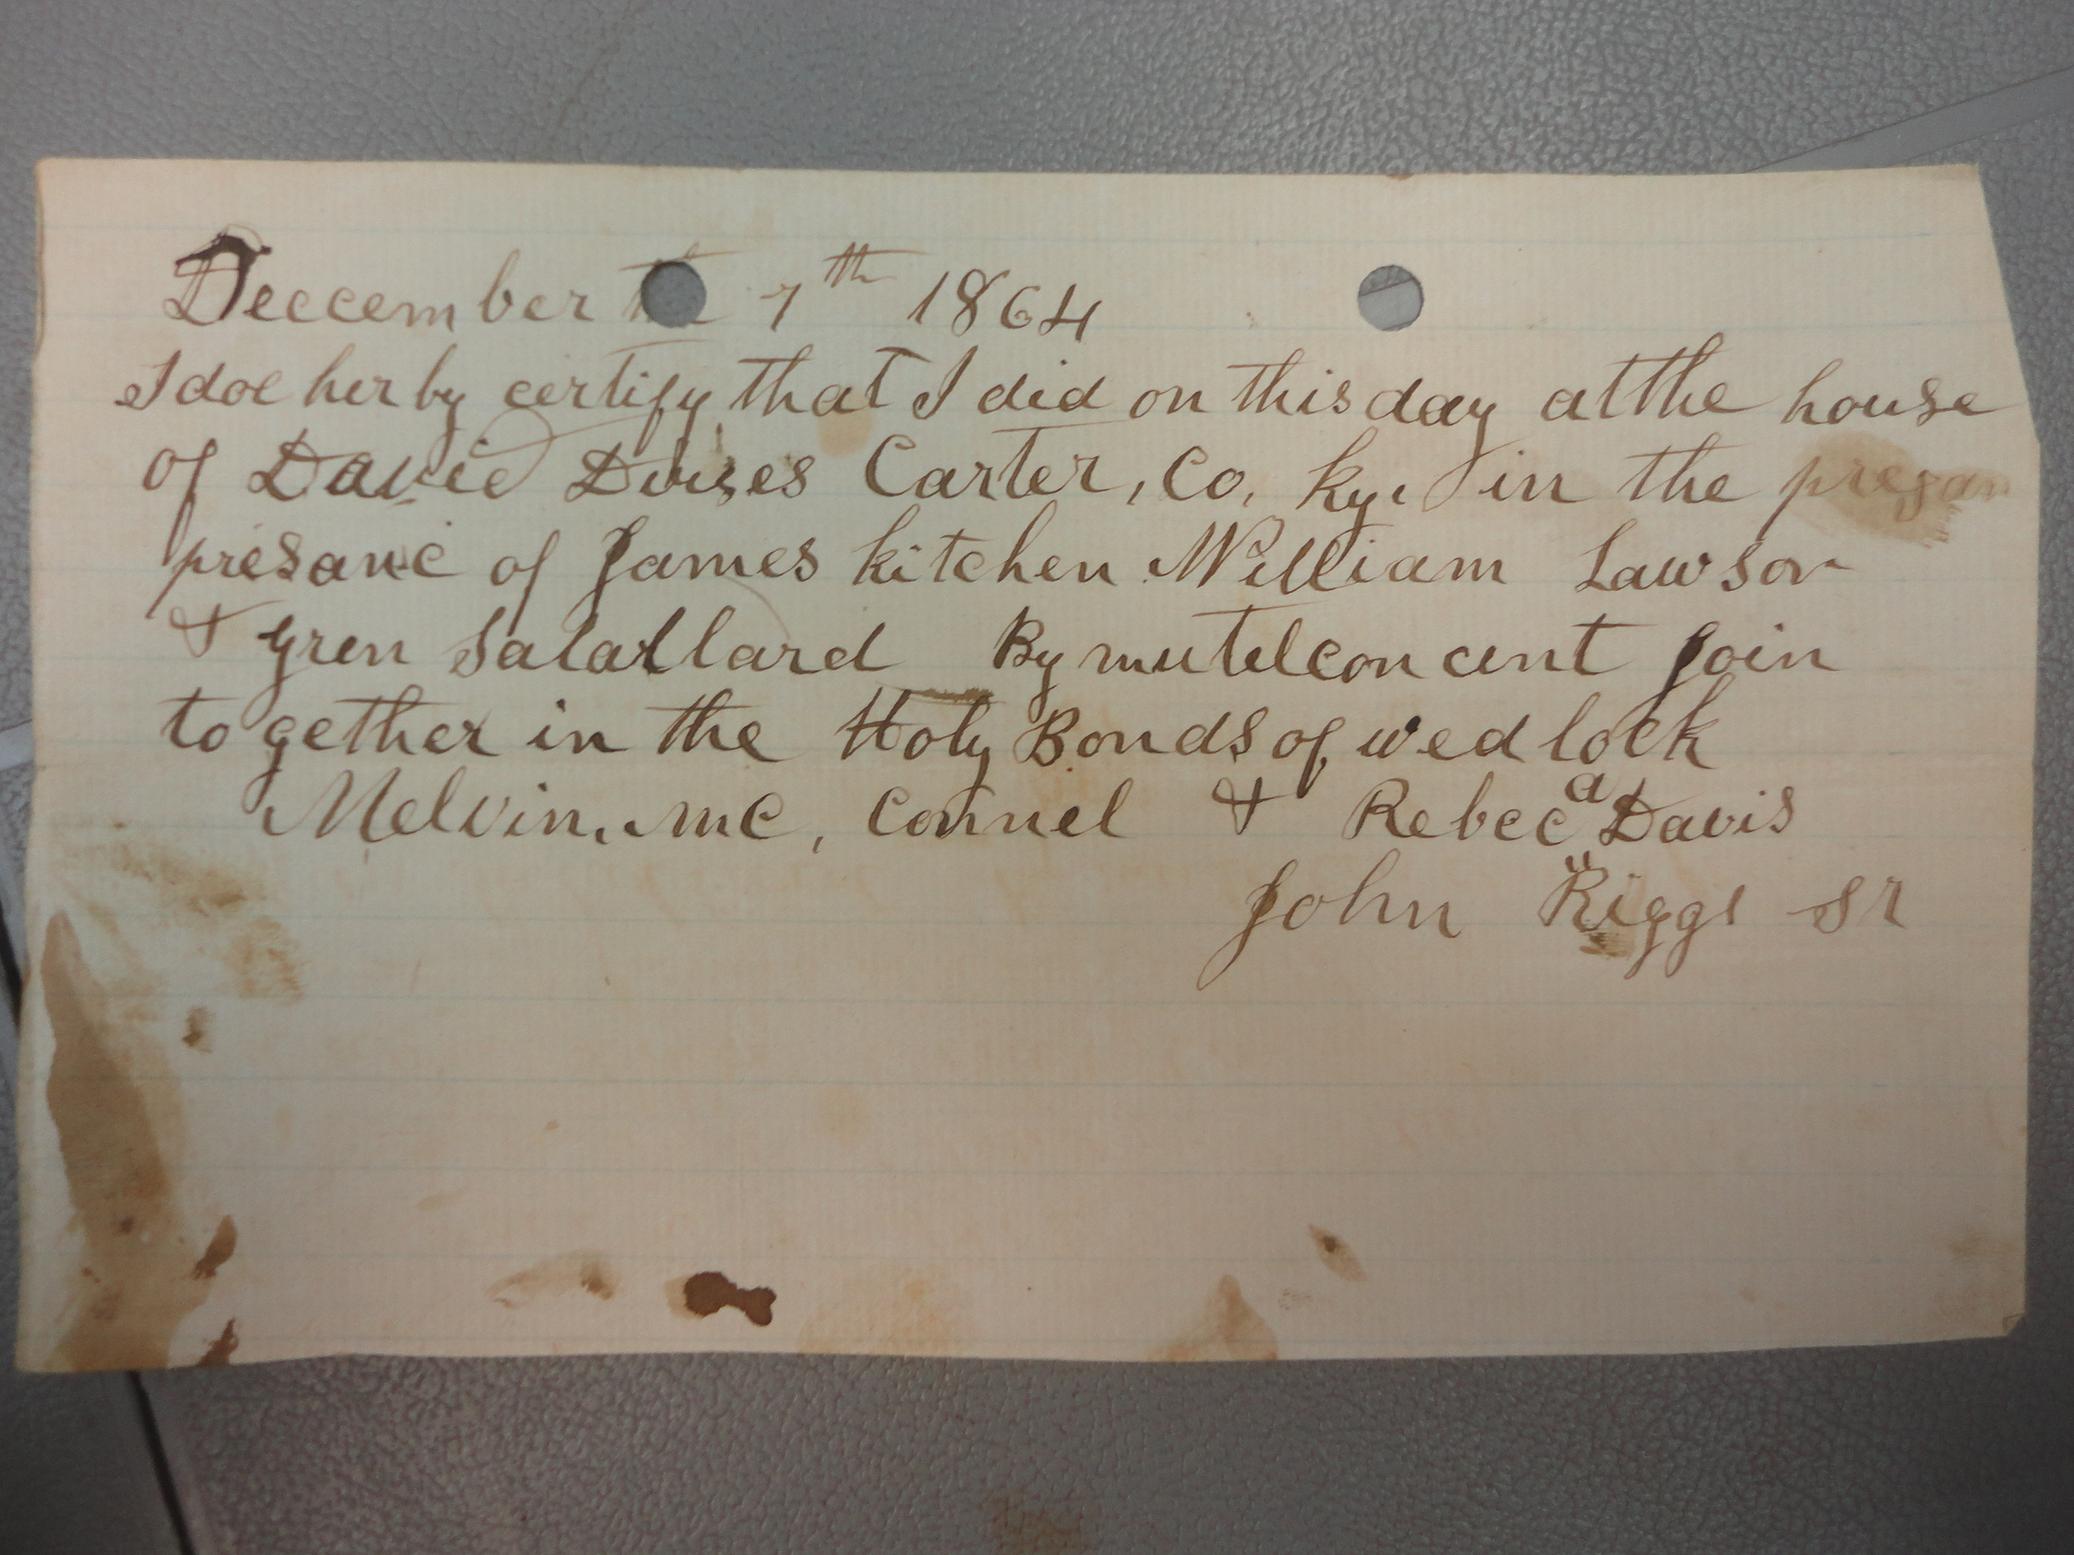 Deccember the 7th 1864
I doe her by certify that I did on this day at the house
of David Davises Carter, Co, ky. in the presan
presance of James kitchen William Lawson
& gren Salallard By mutel concent Join
to gether in the Holy Bonds of wed lock
Melvin. mc, Connel & Rebeca Davis
John Riggs sr